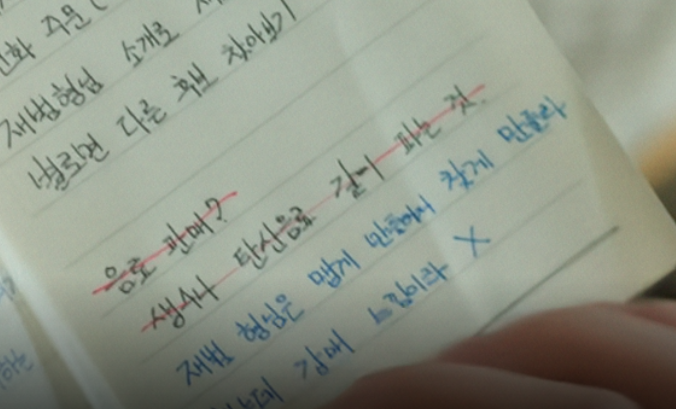 주문
재범형님 소개로
별로면 다른 후보 찾아보기
음료 판매?
생수나 탄산음료 같이 파는 것.
재범 형님은 맵게 만들어서 찾게 만들라
강매 느낌이라 X